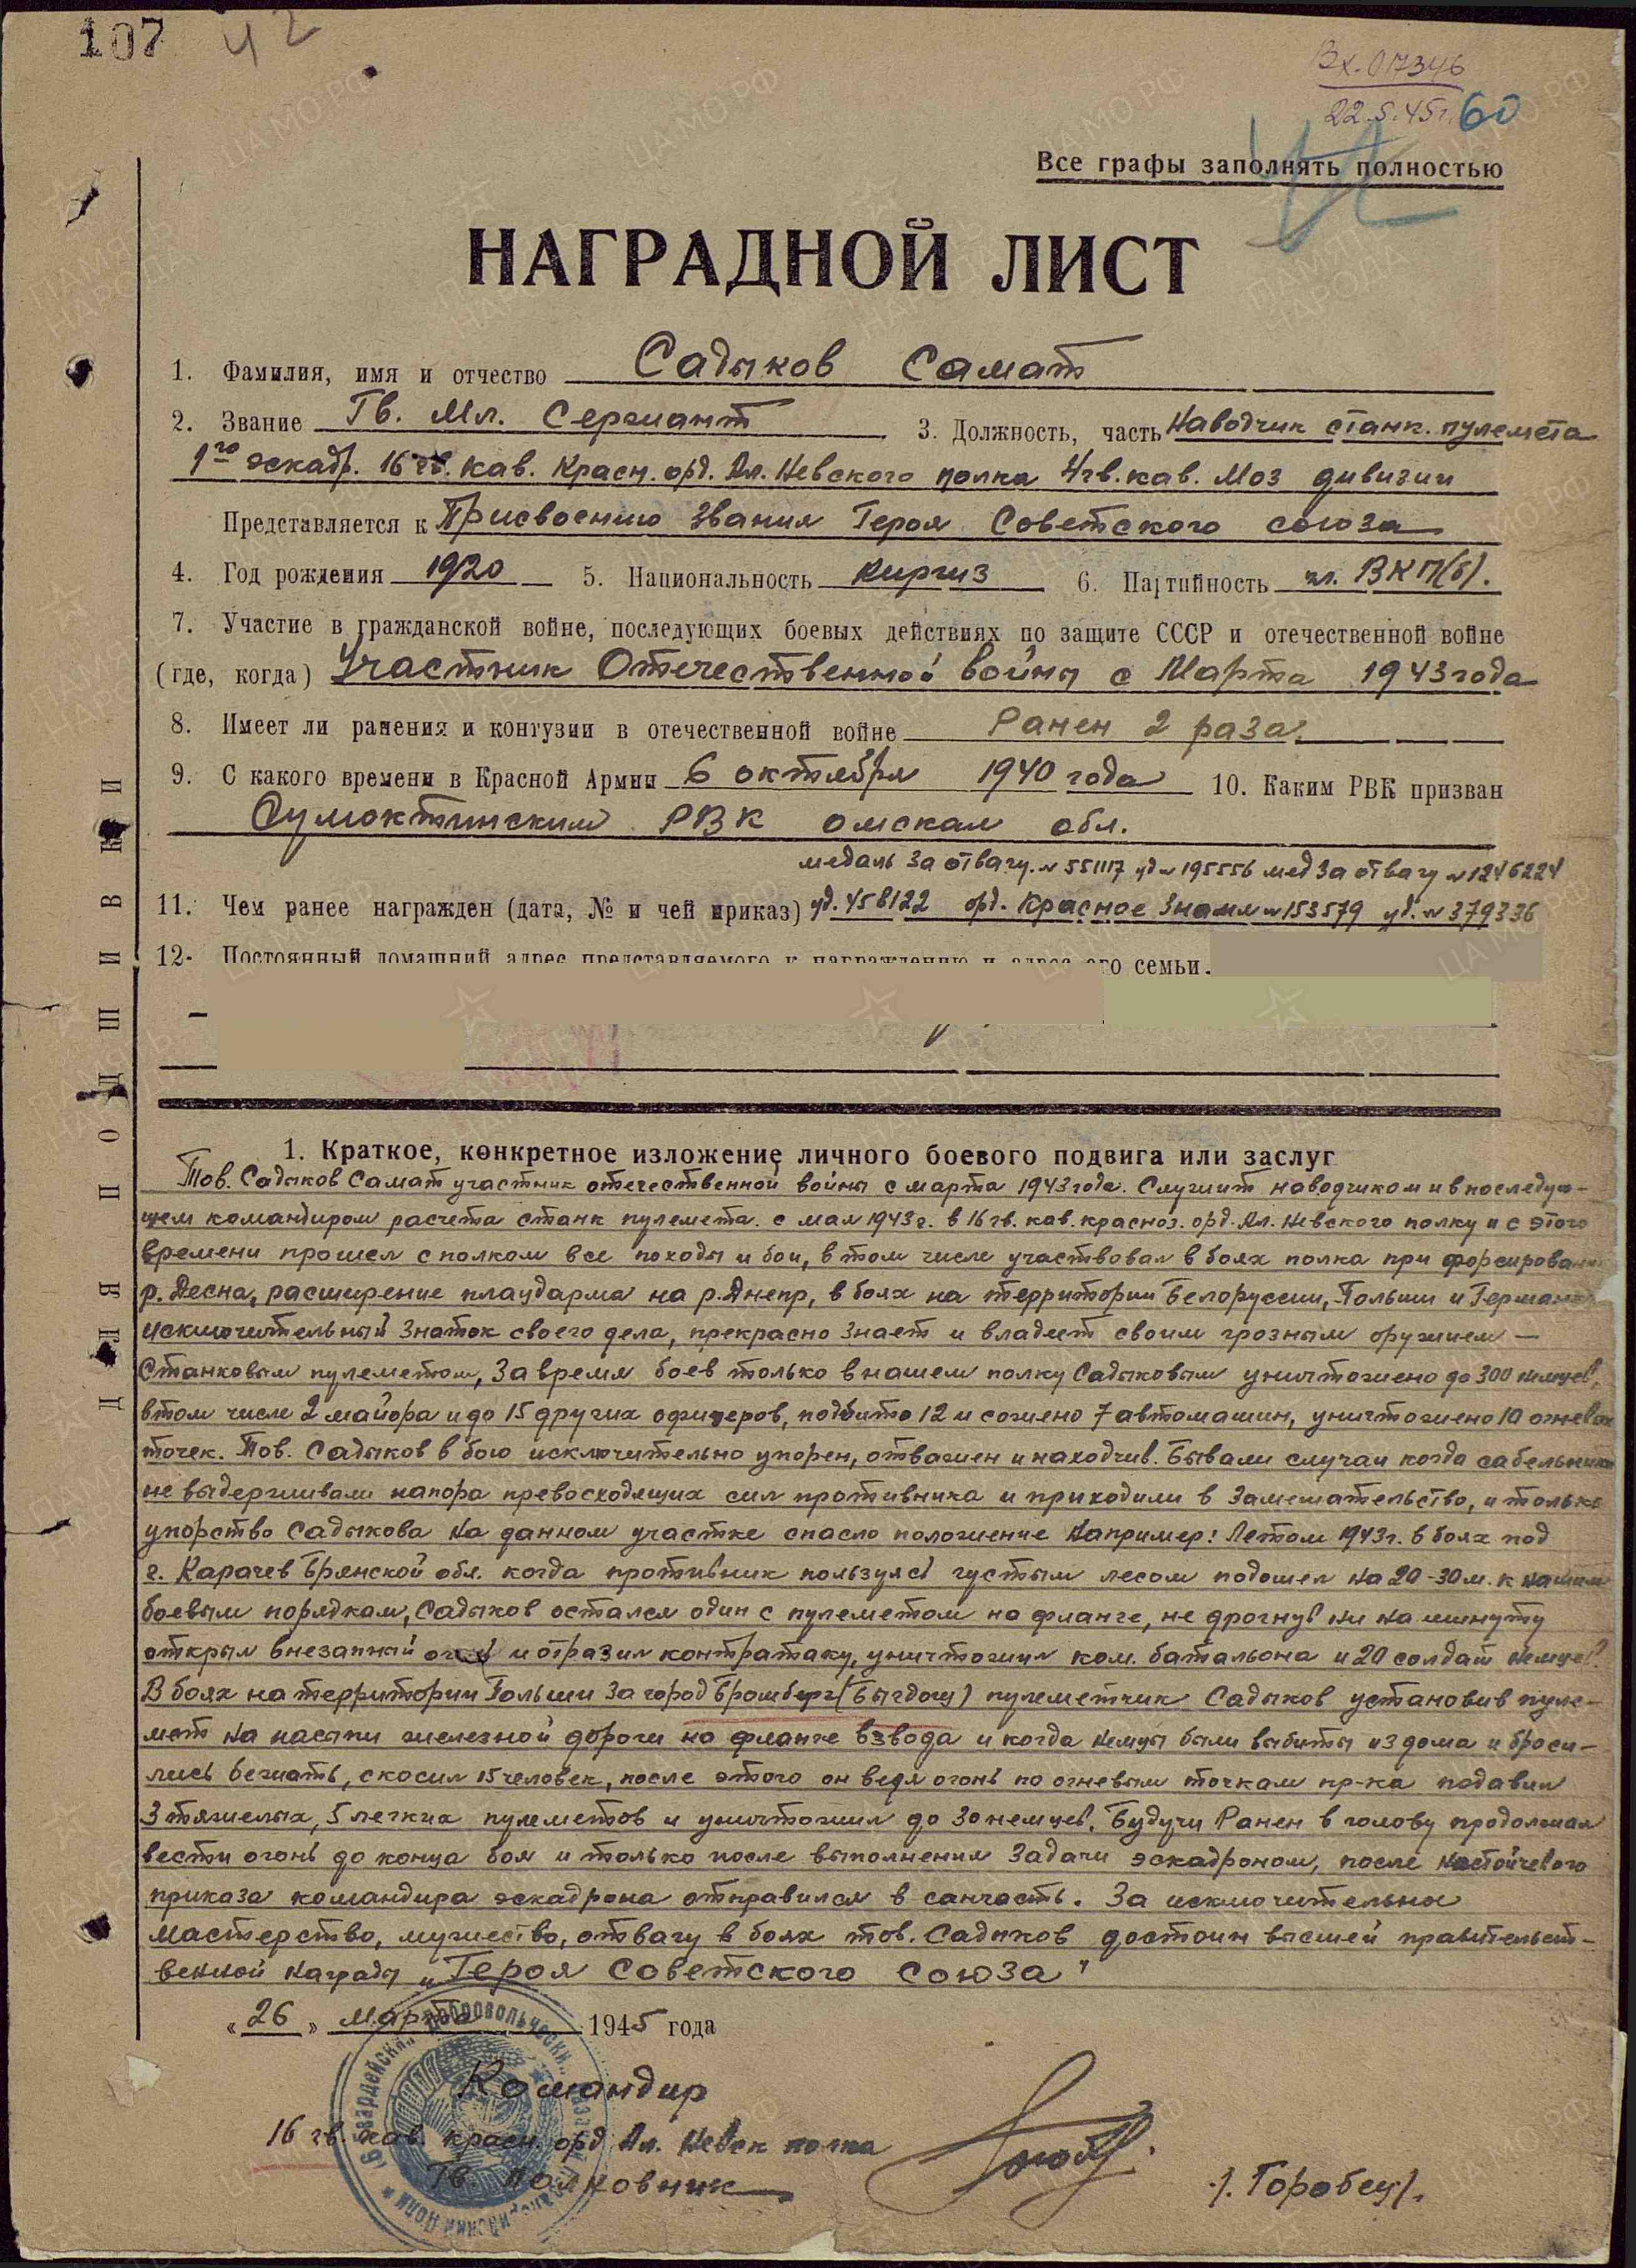 107 42
Вх. 017346
22.5.45г. 60
Все графы заполнять полностью
НАГРАДНОЙ ЛИСТ
1. Фамилия, имя и отчество Садыков Самат
2. Звание Гв. Мл. Сержант 3. Должность, часть Наводчик станк. пулемета
1го эскадр. 16 гв. кав. Красн. орд. Ал. Невского полка 4 гв. кав. Моз дивизии
Представляется к Присвоению звания Героя Советского союза
4. Год рождения 1920 5. Национальность киргиз 6. Партийность чл. ВКП(б).
7. Участие в гражданской войне, последующих боевых действиях по защите СССР и отечественной войне
(где, когда) Участник Отечественной войны с Марта 1943 года
8. Имеет ли ранения и контузии в отечественной войне Ранен 2 раза.
9. С какого времени в Красной Армии 6 октября 1940 года 10. Каким РВК призван
РВК омская обл.
медаль За отвагу. № 551117 уд № 195556 мед За отвагу № 1246224
11. Чем ранее награжден (дата, № и чей приказ) уд. 458122 орд. Красное Знамя № 153579 уд. № 379336
12. Постоянный домашний адрес представляемого к награждению и адрес его семьи.
ДЛЯ ПОДШИВКИ
1. Краткое, конкретное изложение личного боевого подвига или заслуг
Тов. Садыков Самат участник отечественной войны с марта 1943 года. Служит наводчиком и в последую-
щем командиром расчета станк пулемета. с мая 1943г. в 16 гв. кав. красноз. орд. Ал. Невского полку и с этого
времени прошел с полком все походы и бои, в том числе участвовал в боях полка при форсировании
р. Десна, расширение плацдарма на р. Днепр, в боях на территории Белоруссии, Польши и Германии
исключительный знаток своего дела, прекрасно знает и владеет своим грозным оружием —
Станковым пулеметом, За время боев только в нашем полку Садыковым уничтожено до 300 немцев,
в том числе 2 майора и до 15 других офицеров, подбито 12 и сожено 7 автомашин, уничтожено 10 огневых
точек. Тов. Садыков в бою исключительно упорен, отважен и находчив. Бывали случаи когда сабельники
не выдерживали напора превосходящих сил противника и приходили в замешательство, и только
упорство Садыкова на данном участке спасло положение Например: Летом 1943г. в боях под
г. Карачев Брянской обл. когда противник пользуясь густым лесом подошел на 20-30м. к нашим
боевым порядкам, Садыков остался один с пулеметом на фланге, не дрогнув ни на минуту
открыл внезапный огонь и отразил контратаку, уничтожил ком. батальона и 20 солдат немцев.
В боях на территории Польши За город Бромберг (Быгдощ) пулеметчик Садыков установив пуле-
мет на насыпи железной дороги на фланге взвода и когда немцы были выбиты из дома и броси-
лись бежать, скосил 15 человек, после этого он ведя огонь по огневым точкам пр-ка подавил
3 тяжелых, 5 легких пулеметов и уничтожил до 30 немцев. Будучи Ранен в голову продолжал
вести огонь до конца боя и только после выполнения задачи эскадроном, после настойчевого
приказа командира эскадрона отправился в санчасть. За исключительное
мастерство, мужество, отвагу в боях тов. Садыков достоин высшей правительст-
венной награды „Героя Советского Союза"
«26» марта 1945 года
Командир
16 гв. кав. красн. орд Ал. Невск полка
Гв. Полковник
/. Горобец/.